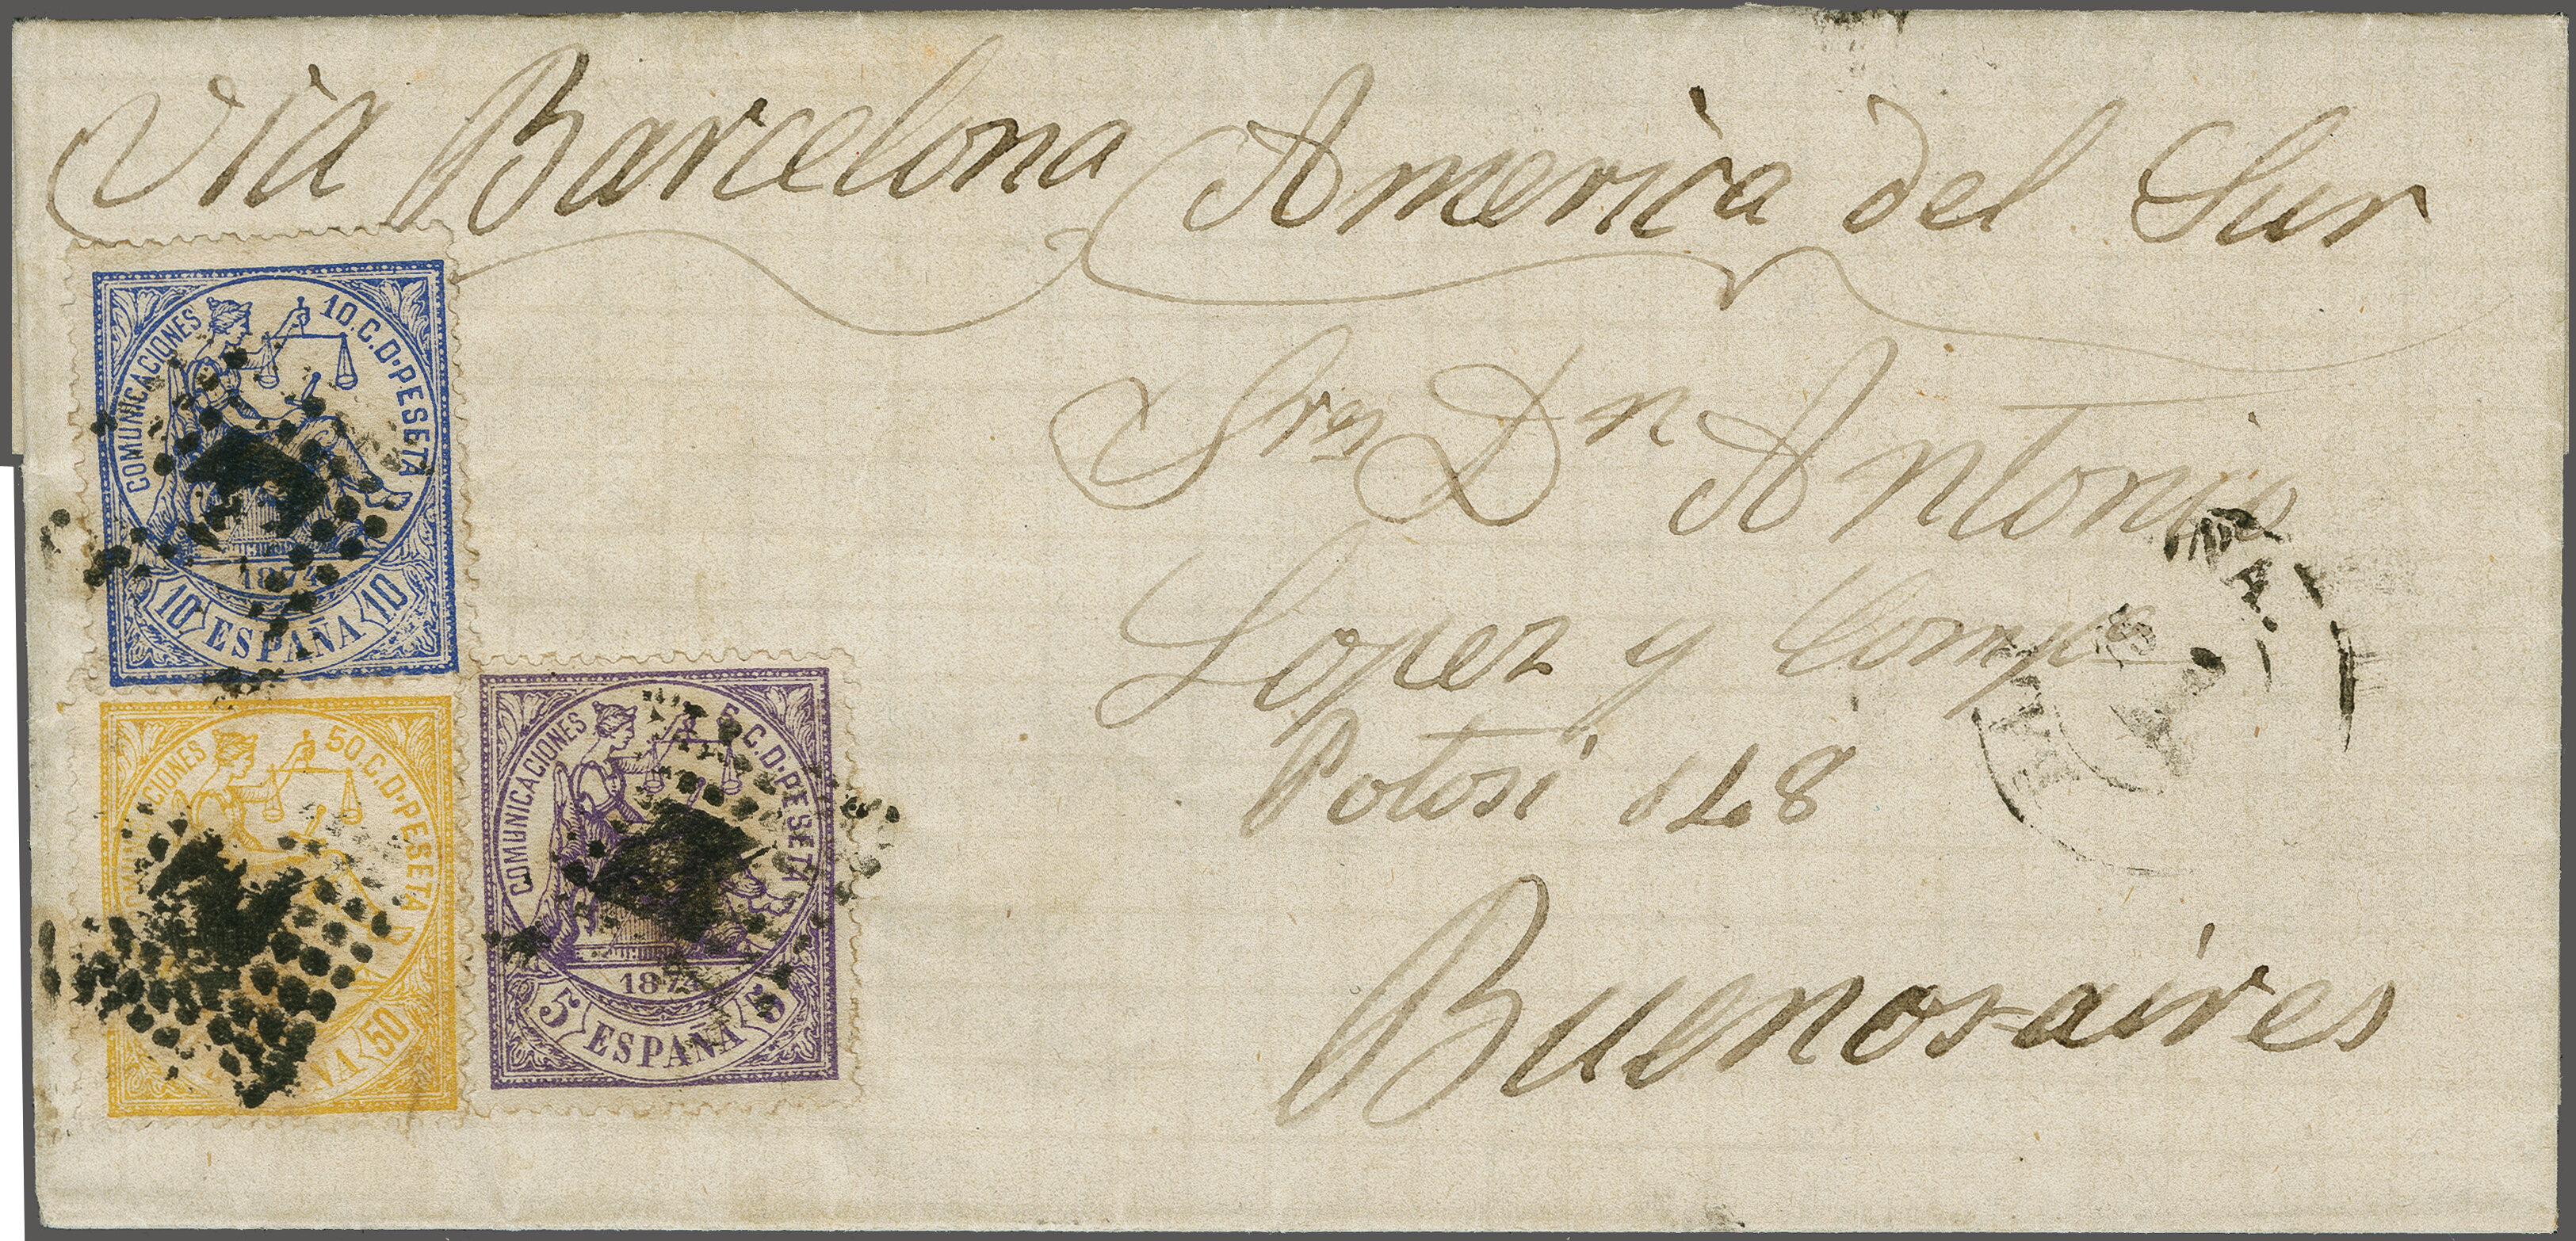 Via Barcelona America del Sur
Sres Dn Antonio
Lopez y Compa
Potosi 148
Buenos-aires
COMUNICACIONES 10.C.D.PESETA
1874
10 ESPAÑA 10
50.C.D.PESETA
50
COMUNICACIONES 5 C.D.PESETA
1874
5 ESPAÑA 5